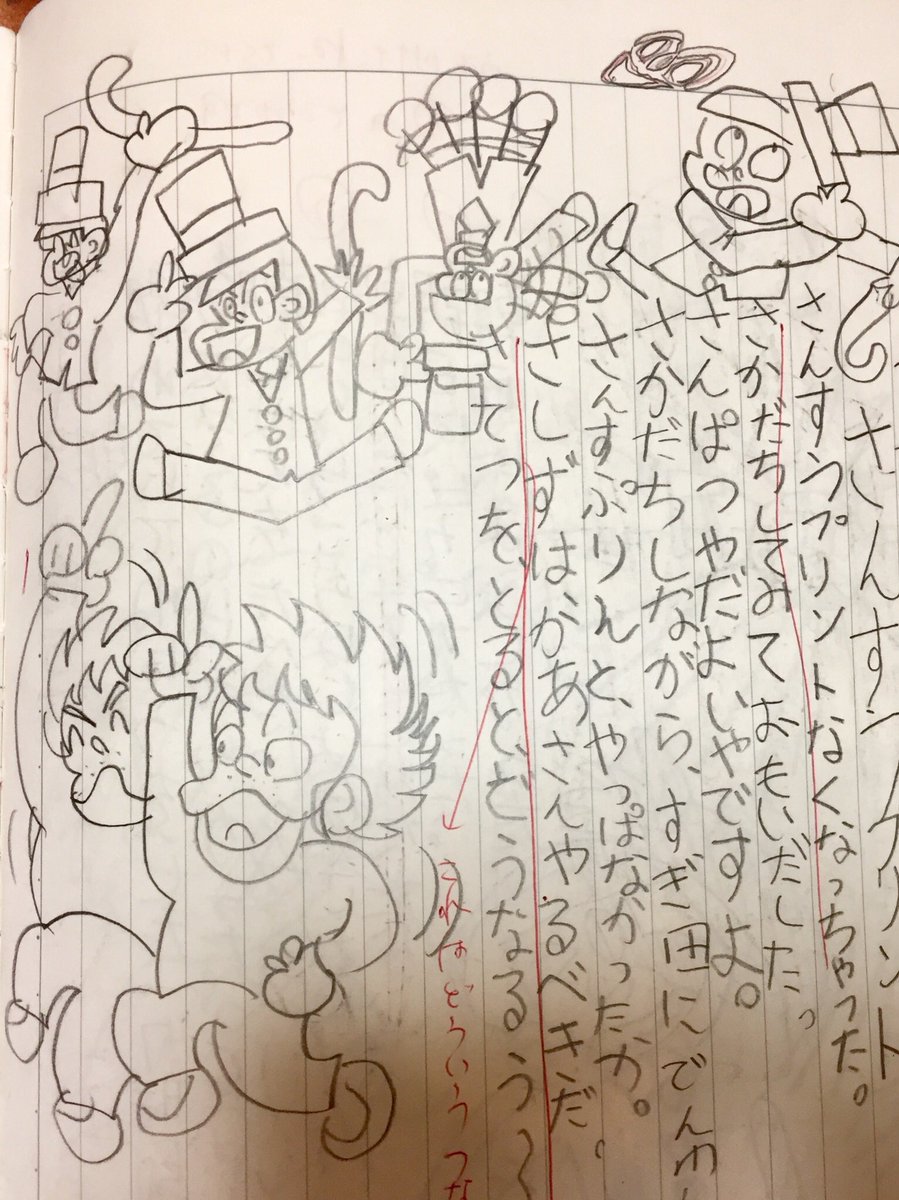 さんすうプリント
さんすうプリントなくなっちゃった。
さかだちしてみておもいだした。
さんぱつやだよいやですよ。
さかだちしながら、すぎ田にでんわし
さんすぷりんと、やっぱなかったか。
さしずはかあさんやるべきだ
さてつを、とると、どうなるう〜
これはどういうつな